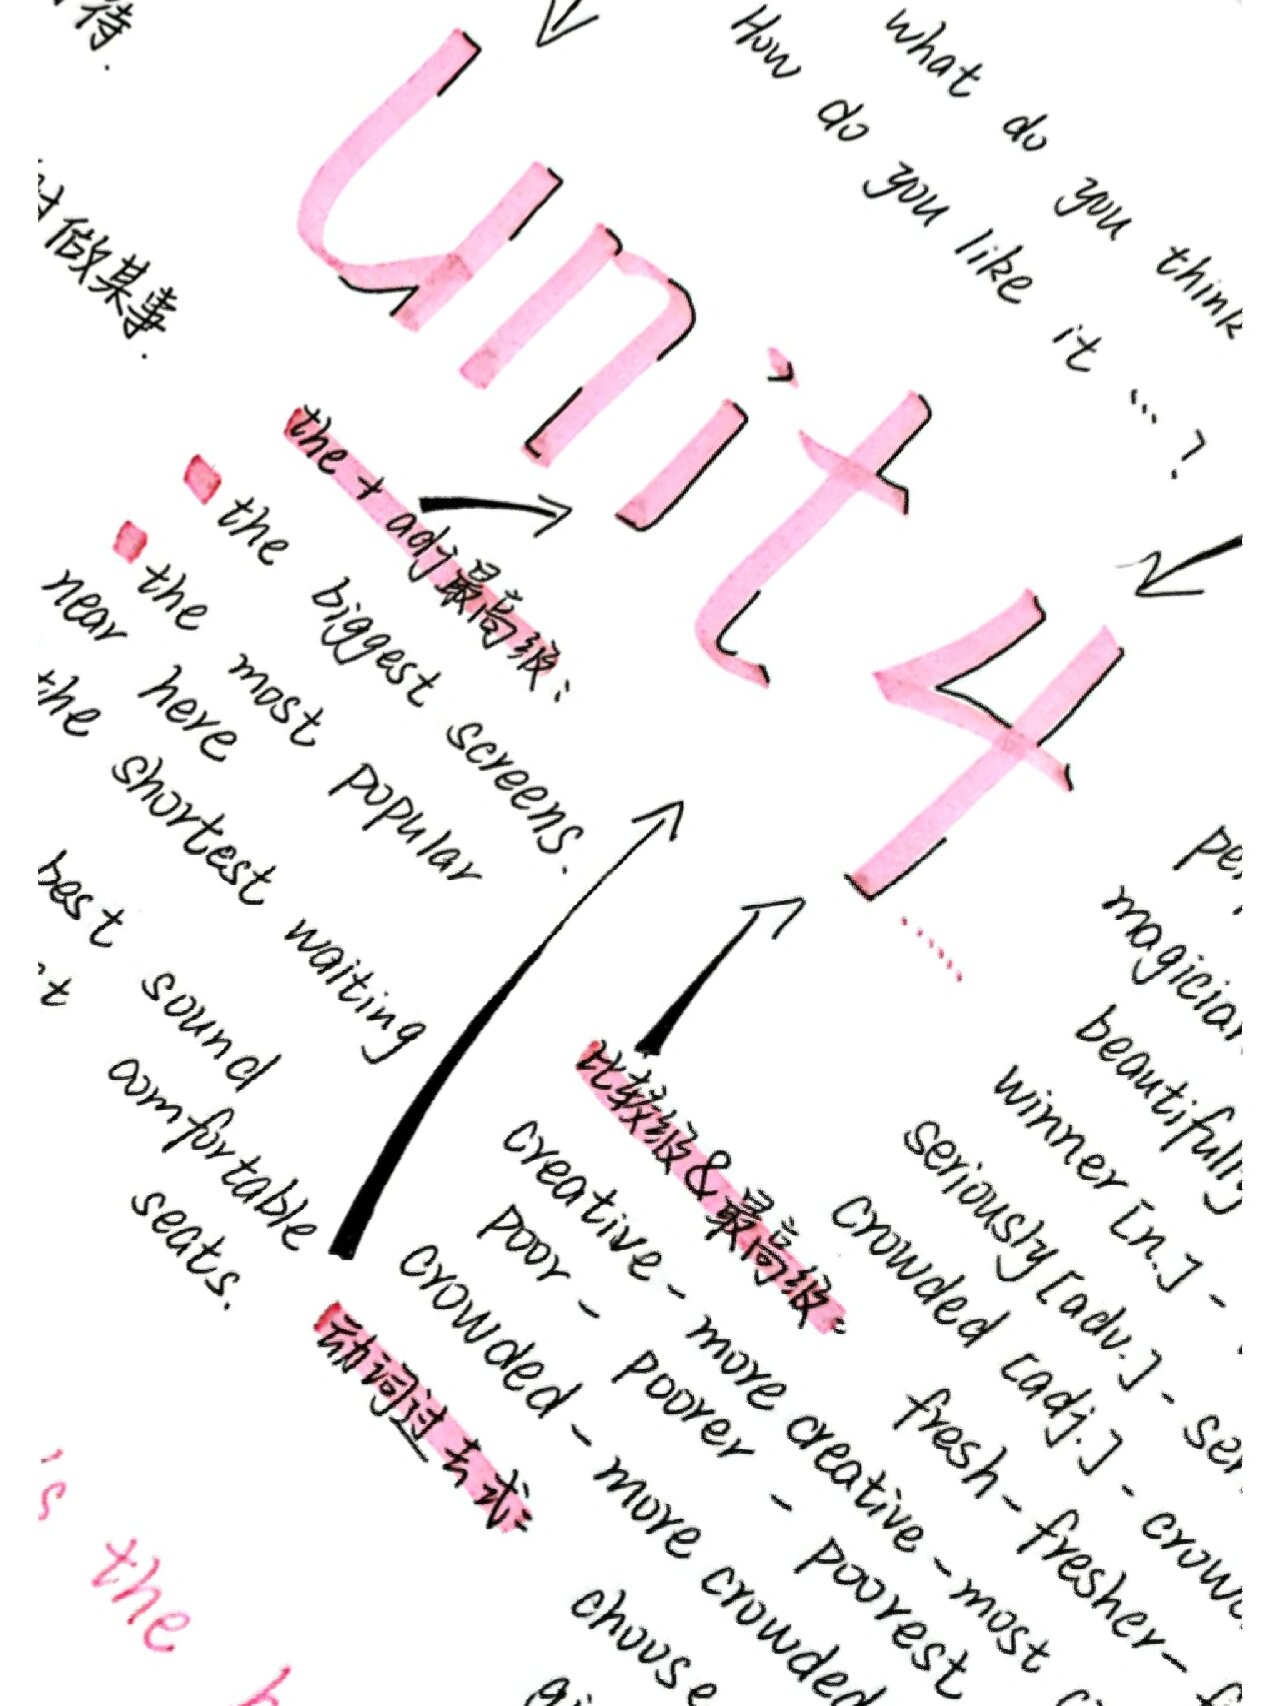 待.
做某事.
what do you think
How do you like it ... ?
unit 4
the + adj最高级:
the biggest screens.
the most popular
near here
the shortest waiting
best sound
comfortable
seats.
比较级&最高级:
creative - more creative - most
poor - poorer - poorest
crowded - more crowded
magician
beautifully
winner [n.] -
seriously [adv.] -
crowded [adj.] -
fresh - fresher -
动词过去式:
choose
's the